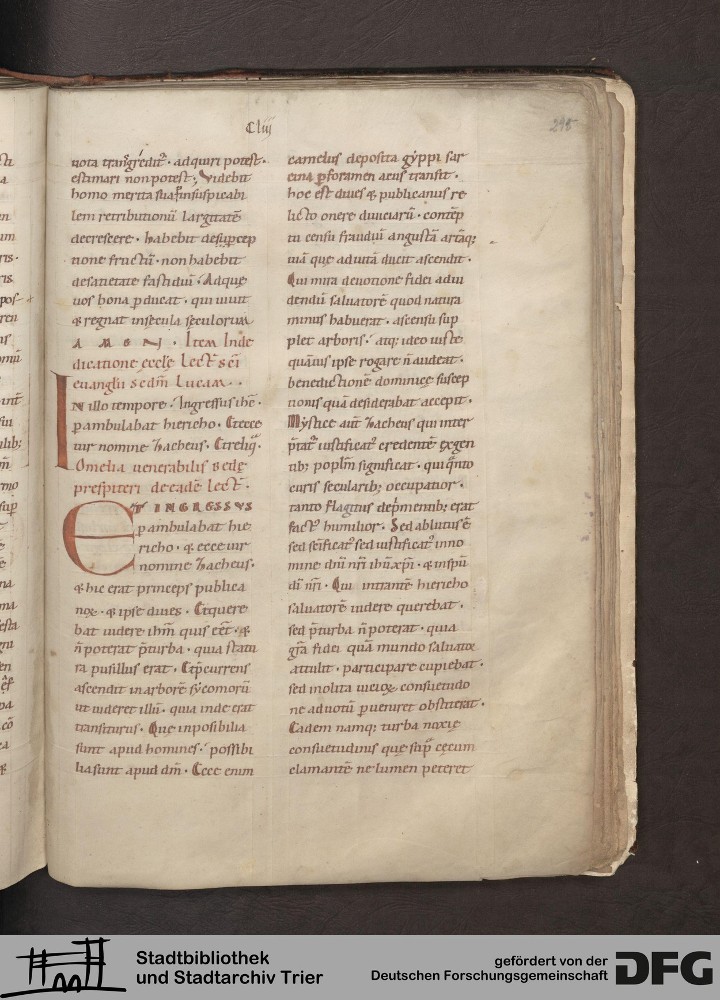 Cliij
295
uota transgredit᷑ · adquiri potest ·
estimari non potest ; Videbit
homo merita sua ⁊ insuspicabi
lem retributionū largitatē
decrescere · habebit de suscep
tione fructū · non habebit
de satietate fastidiū · Ad que
uos bona p̄ducat · qui uiuit
& regnat in secula seculorum
A M E N · Item In de
dicatione eccl̄e Lect̄ sc̄i
euanglii scdm̄ Lucam ·
IN illo tempore · Ingressus ih̄c ·
ꝑambulabat hiericho · Et ecce
uir nomine Zacheus · Et reliq̄ ·
Omelia uenerabilis Bede
presbiteri de eadē Lect̄ ·
ET INGRESSUS
ꝑambulabat hie
richo · & ecce uir
nomine Zacheus ·
& hic erat princeps publica
noꝝ · & ipse diues · Et quere
bat uidere ih̄m quis eēt · &
n̄ poterat p̄ turba · quia statu
ra pusillus erat · Et p̄currens
ascendit in arborē sycomorū
ut uideret illū · quia inde erat
transiturus · Que inposibilia
sunt apud homines · possibi
lia sunt apud dm̄ · Ecce enim
camelus deposita gyppi sar
cina ꝑ foramen acus transit ·
hoc est diues & publicanus re
licto onere diuiciarū · contēp
tu censu fraudiū angustā artāq;
uiā que ad uitā ducit ascendit ·
Qui mira deuotione fidei ad ui
dendū saluatorē quod natura
minus habuerat · ascensu sup
plet arboris · atq; ideo iuste
quāuis ipse rogare n̄ audeat ·
benedictionē dominicę suscep
tionis quā desiderabat accepit ·
Mystice aut̄ Zacheus qui inter
p̄tat᷑ iustificat᷑ credentē ex gen
tib; poplm̄ significat · qui q̄nto
curis secularib; occupatior ·
tanto flagitiis dep̄mentib; erat
fact᷑ humilior · Sed ablutus ē
sed sc̄ificat᷑ sed iustificat᷑ in no
mine dn̄i nr̄i ih̄u xp̄i · & in sp̄u
dī nr̄i · Qui intrantē hiericho
saluatorē uidere querebat ·
sed p̄ turba n̄ poterat · quia
gr̄a fidei quā mundo saluator
attulit · participare cupiebat ·
sed inolita uicioꝝ consuetudo
ne ad uotū ꝑueniret obstiterat ·
Eadem namq; turba noxię
consuetudinis que sup̄ cęcum
clamantē ne lumen peteret
Stadtbibliothek
und Stadtarchiv Trier
gefördert von der
Deutschen Forschungsgemeinschaft
DFG